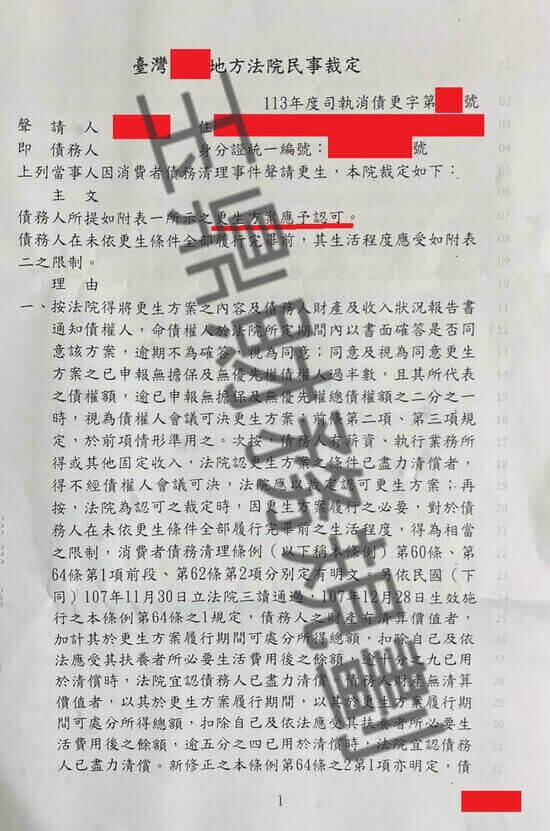 臺灣 地方法院民事裁定 01
113年度司執消債更字第 號 02
聲請人 住 03
即債務人 身分證統一編號： 號 04
上列當事人因消費者債務清理事件聲請更生，本院裁定如下： 05
主文 06
債務人所提如附表一所示之更生方案應予認可。 07
債務人在未依更生條件全部履行完畢前，其生活程度應受如附表 08
二之限制。 09
理由 10
一、按法院得將更生方案之內容及債務人財產及收入狀況報告書 11
通知債權人，命債權人於法院所定期間內以書面確答是否同 12
意該方案，逾期不為確答，視為同意；同意及視為同意更生 13
方案之已申報無擔保及無優先權債權人過半數，且其所代表 14
之債權額，逾已申報無擔保及無優先權總債權額之二分之一 15
時，視為債權人會議可決更生方案；前條第二項、第三項規 16
定，於前項情形準用之。次按，債務人有薪資、執行業務所 17
得或其他固定收入，法院認更生方案之條件已盡力清償者， 18
得不經債權人會議可決，法院應以裁定認可更生方案；再 19
按，法院為認可之裁定時，因更生方案履行之必要，對於債 20
務人在未依更生條件全部履行完畢前之生活程度，得為相當 21
之限制，消費者債務清理條例（以下稱本條例）第60條、第 22
64條第1項前段、第62條第2項分別定有明文。另依民國（下 23
同）107年11月30日立法院三讀通過，107年12月28日生效施 24
行之本條例第64條之1規定，債務人之財產有清算價值者， 25
加計其於更生方案履行期間可處分所得總額，扣除自己及依 26
法應受其扶養者所必要生活費用後之餘額，逾十分之九已用 27
於清償時，法院宜認債務人已盡力清償。債務人財產無清算 28
價值者，以其於更生方案履行期間，以其於更生方案履行期 29
間可處分所得總額，扣除自己及依法應受其扶養者所必要生 30
活費用後之餘額，逾五分之四已用於清償時，法院宜認債務 31
人已盡力清償。新修正之本條例第64條之2第1項亦明定，債 32
1
玉鼎財務規劃